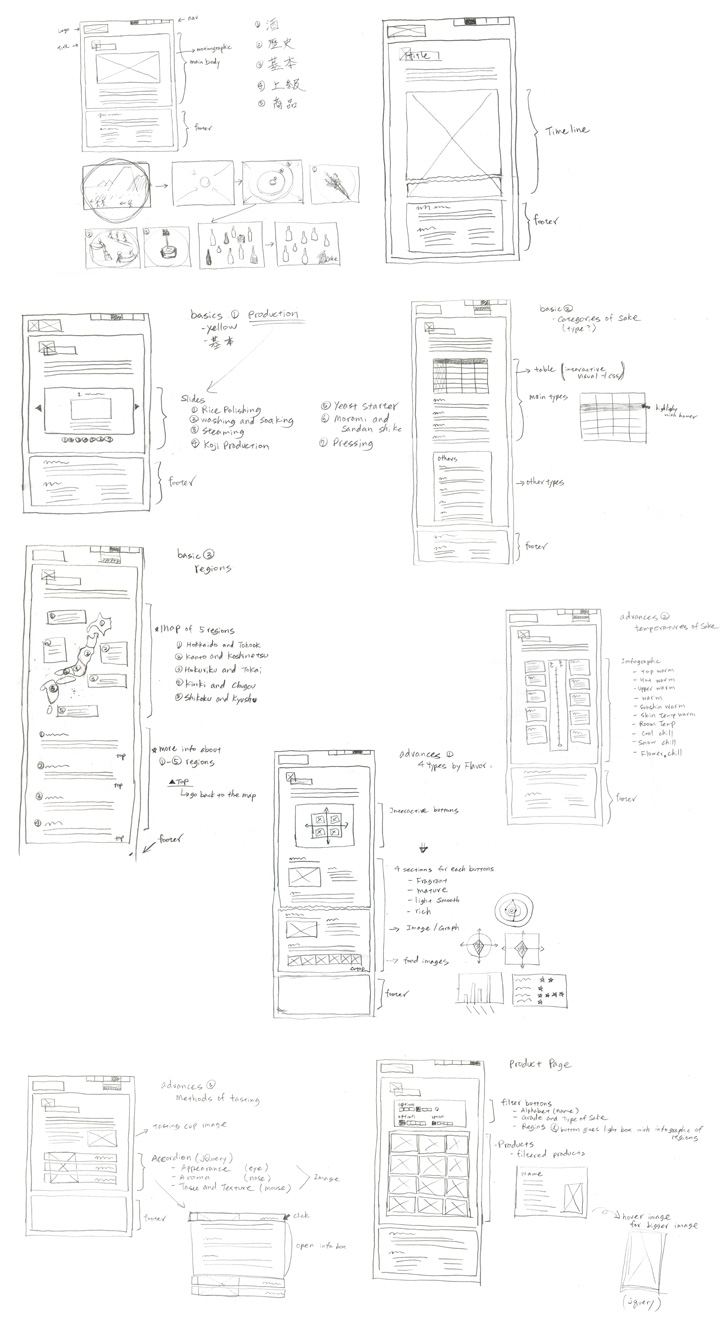 Logo
nav
title
motiongraphic
main body
footer
① 酒
② 歴史
③ 基本
④ 上級
⑤ 商品
title
Timeline
footer
basics ① production
- yellow
- 基本
Slides
① Rice Polishing
② washing and soaking
③ steaming
④ Koji Production
⑤ Yeast Starter
⑥ Moromi and
Sandan shike
⑦ Pressing
footer
basic ②
- Categories of Sake
(type?)
table (interactive
visual + css)
main types
highlight
with hover
others
other types
footer
basic ③
regions
* map of 5 regions
① Hokkaido and Tohoku
② Kanto and Koshinetsu
③ Hokuriku and Tokai
④ Kinki and Chugou
⑤ Shikoku and Kyushu
* more info about
①-⑤ regions
▲ Top
go back to the map
top
top
top
top
footer
advances ②
temperatures of Sake
Infographic
- Hot warm
- Upper warm
- warm
- Skin Temp warm
- Room Temp
- Cool chill
- Snow chill
- Flower chill
footer
advances ①
4 types by Flavor.
Interactive buttons
4 sections for each buttons
- Fragrant
- mature
- light smooth
- rich
→ Image / Graph
→ food images
footer
advances ③
Methods of tasting
tasting cup image
Accordion (jQuery)
- Appearance (eye)
- Aroma (nose)
- Taste and Texture (mouse)
Image
footer
click
open info box
Product Page
option
option
filter buttons
- Alphabet (name)
- Grade and Type of Sake
- Regins button goes light box with infographic of
regions
- Products
- filtered products
name
hover image
for bigger image
(jquery)